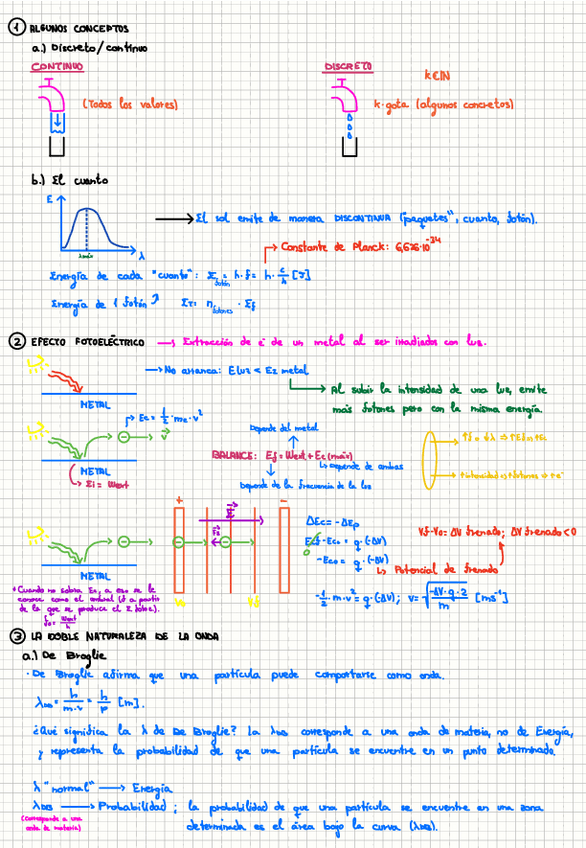 1 ALGUNOS CONCEPTOS
a.) Discreto/continuo
CONTINUO
DISCRETO
k∈ℕ
(Todos los valores)
k·gota (algunos concretos)
b.) El cuanto
E
λ
λmáx
El sol emite de manera DISCONTINUA ("paquetes", cuanto, fotón).
Constante de Planck: 6,626·10⁻³⁴
Energía de cada "cuanto": E fotón = h·f = h·c/λ [J]
Energía de 1 fotón
ET = n fotones · Ef
2 EFECTO FOTOELÉCTRICO → Extracción de e⁻ de un metal al ser irradiados con luz.
No arranca: E luz < Ez metal
METAL
Al subir la intensidad de una luz, emite
más fotones pero con la misma energía.
Ec = 1/2 · me · v²
v
METAL
Ei = Wext
Depende del metal
BALANCE: Ef = Wext + Ec (máx)
Depende de ambas
Depende de la frecuencia de la luz
+
-
E
Fe
METAL
V0
Vf
ΔEc = -ΔEp
Ecf - Eco = q·(-ΔV)
0
-Eco = q·(-ΔV)
Potencial de frenado
Vf-V0 = ΔV frenado; ΔV frenado < 0
-1/2·m·v² = q·(-ΔV); v = √(-ΔV·q·2/m) [ms⁻¹]
*Cuando no sobra Ec, a eso se le
conoce como el umbral (f a partir
de la que se produce el E. fotoe).
f0 = Wext/h
3 LA DOBLE NATURALEZA DE LA ONDA
a.) De Broglie
· De Broglie afirma que una partícula puede comportarse como onda.
λDB = h/m·v = h/p [m].
¿Qué significa la λ de De Broglie? La λDB corresponde a una onda de materia, no de Energía,
y representa la probabilidad de que una partícula se encuentre en un punto determinado.
λ "normal" → Energía
λDB → Probabilidad; la probabilidad de que una partícula se encuentre en una zona
(Corresponde a una
onda de materia)
determinada es el área bajo la curva (λDB).